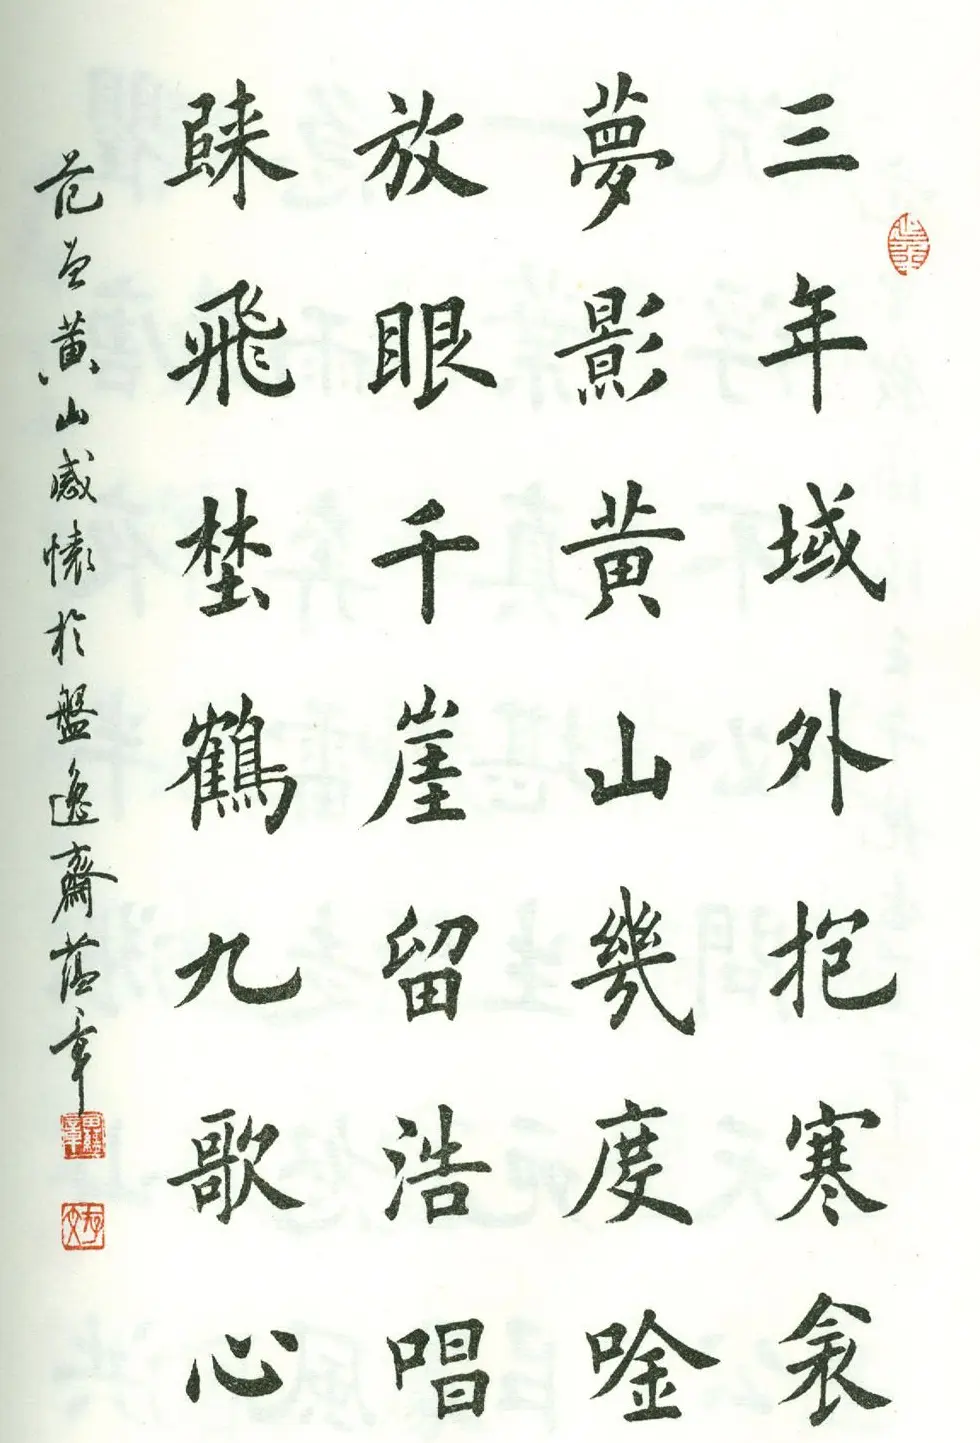 三年域外抱寒衾
夢影黃山幾度唫
放眼千崖留浩唱
飛埜鶴九歌心
范曾黃山感懷於盤逸齋蘊章